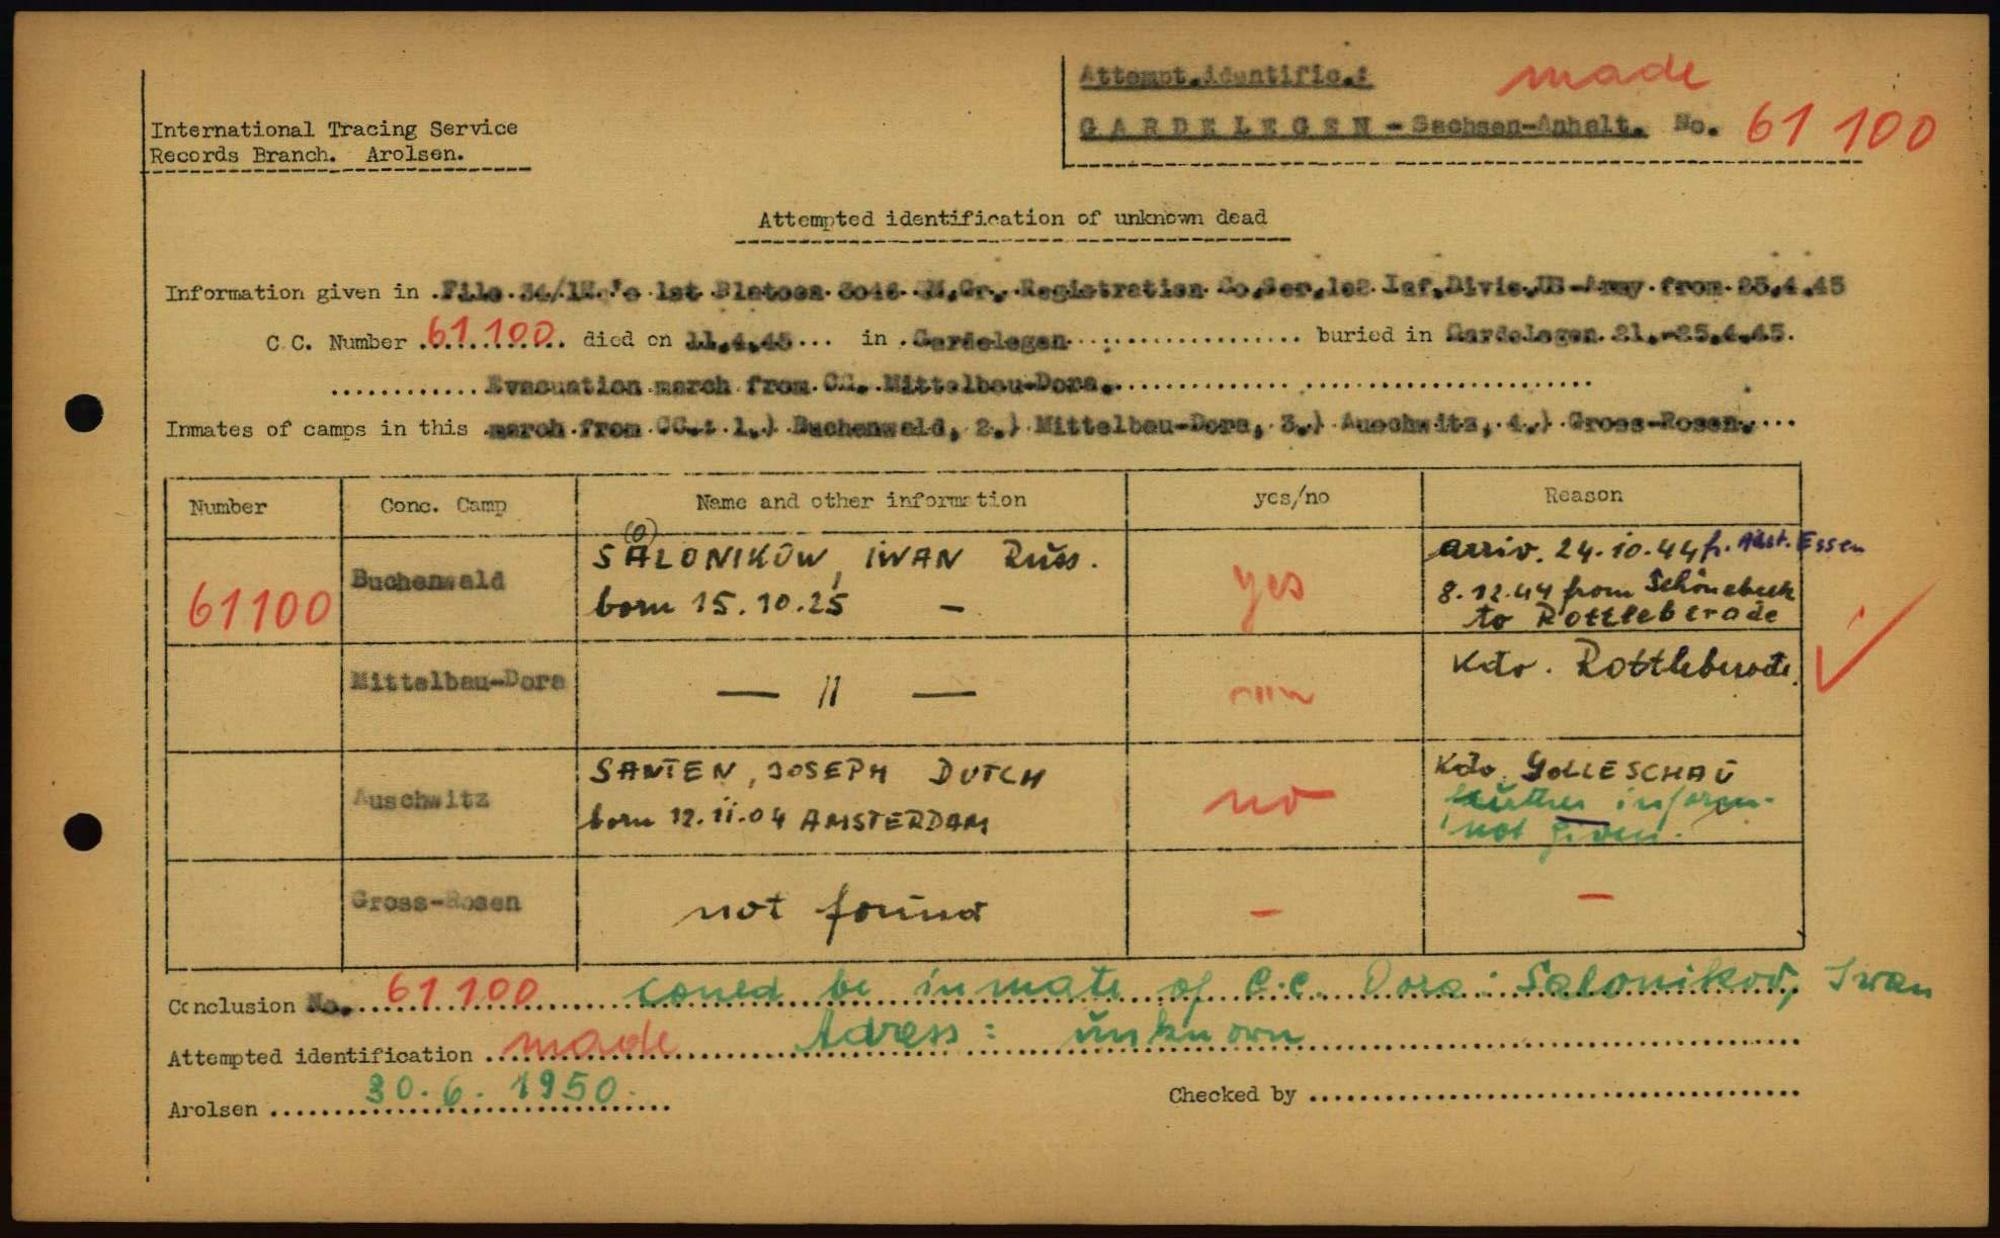 Attempt.identific.: made
International Tracing Service
Records Branch. Arolsen.
GARDELEGEN - Sachsen-Anhalt. No. 61 100
Attempted identification of unknown dead
Information given in .File 34/ 1st Platoon 3046 Gr. Registration Co, Ser, 102 Inf. Divis. US-Army from 25.4.45
C.C. Number 61 100 died on 11.4.45 ... in . Gardelegen ... buried in Gardelegen 21.-25.4.45.
Evacuation march from CC. Mittelbau-Dora.
Inmates of camps in this march from CC.: 1.) Buchenwald, 2.) Mittelbau-Dora, 3.) Auschwitz, 4.) Gross-Rosen.
Number Conc. Camp Name and other information yes/no Reason
(o)
61100 Buchenwald SALONIKOW, IWAN Russ. yes arriv. 24.10.44 fr. Essen
born 15.10.25 — 8.12.44 from Schönebeck
to Rottleberode
Mittelbau-Dora — 11 — Kdo. Rottleberode.
Auschwitz SANTEN, JOSEPH DUTCH no Kdo GOLLESCHAU
born 12.11.04 AMSTERDAM further inform.
not given.
Gross-Rosen not found — —
Conclusion No. 61 100 could be inmate of C.C. Dora: Salonikov, Iwan
Attempted identification made Adress: unknown
Arolsen 30.6.1950. Checked by